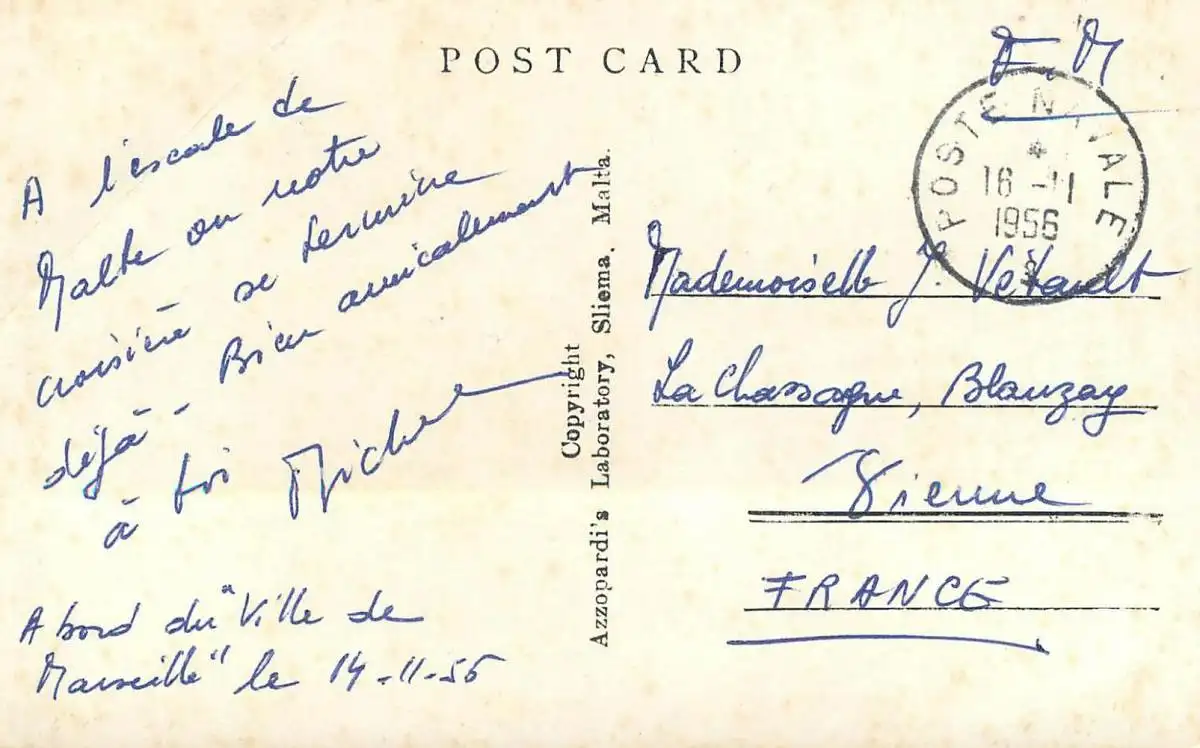 POST CARD
F.M
POSTE NAVALE
16 -11
1956
A l'escale de
Malte ou notre
croisière se termine
déjà - Bien amicalement
à toi Michel
A bord du "Ville de
Marseille" le 14-11-56
Copyright
Azzopardi's Laboratory, Sliema, Malta.
Mademoiselle J. Vétault
La Chassagne, Blanzay
Vienne
FRANCE